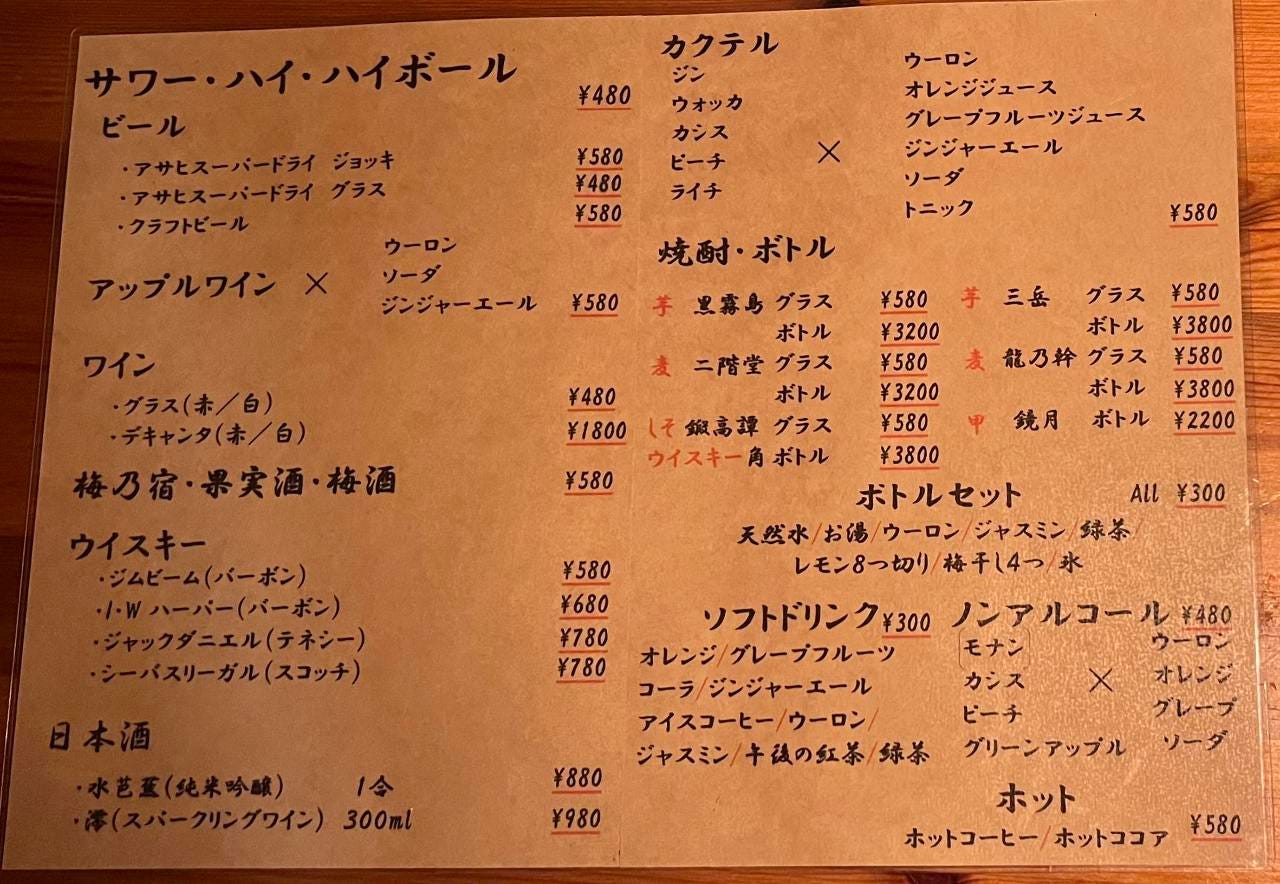 サワー・ハイ・ハイボール ¥480
ビール
・アサヒスーパードライ ジョッキ ¥580
・アサヒスーパードライ グラス ¥480
・クラフトビール ¥580
アップルワイン ×
ウーロン
ソーダ
ジンジャーエール ¥580
ワイン
・グラス(赤/白) ¥480
・デキャンタ(赤/白) ¥1800
梅乃宿・果実酒・梅酒 ¥580
ウイスキー
・ジムビーム(バーボン) ¥580
・I・W ハーパー(バーボン) ¥680
・ジャックダニエル(テネシー) ¥780
・シーバスリーガル(スコッチ) ¥780
日本酒
・水芭蕉(純米吟醸) 1合 ¥880
・澪(スパークリングワイン) 300ml ¥980
カクテル
ジン
ウォッカ
カシス
ピーチ
ライチ
×
ウーロン
オレンジジュース
グレープフルーツジュース
ジンジャーエール
ソーダ
トニック ¥580
焼酎・ボトル
芋 黒霧島 グラス ¥580
ボトル ¥3200
麦 二階堂 グラス ¥580
ボトル ¥3200
しそ 鍛高譚 グラス ¥580
ウイスキー 角 ボトル ¥3800
芋 三岳 グラス ¥580
ボトル ¥3800
麦 龍乃幹 グラス ¥580
ボトル ¥3800
甲 鏡月 ボトル ¥2200
ボトルセット All ¥300
天然水/お湯/ウーロン/ジャスミン/緑茶/
レモン8つ切り/梅干し4つ/氷
ソフトドリンク ¥300
オレンジ/グレープフルーツ
コーラ/ジンジャーエール
アイスコーヒー/ウーロン/
ジャスミン/午後の紅茶/緑茶
ノンアルコール ¥480
モナン
カシス
ピーチ
グリーンアップル
×
ウーロン
オレンジ
グレープ
ソーダ
ホット
ホットコーヒー/ホットココア ¥580